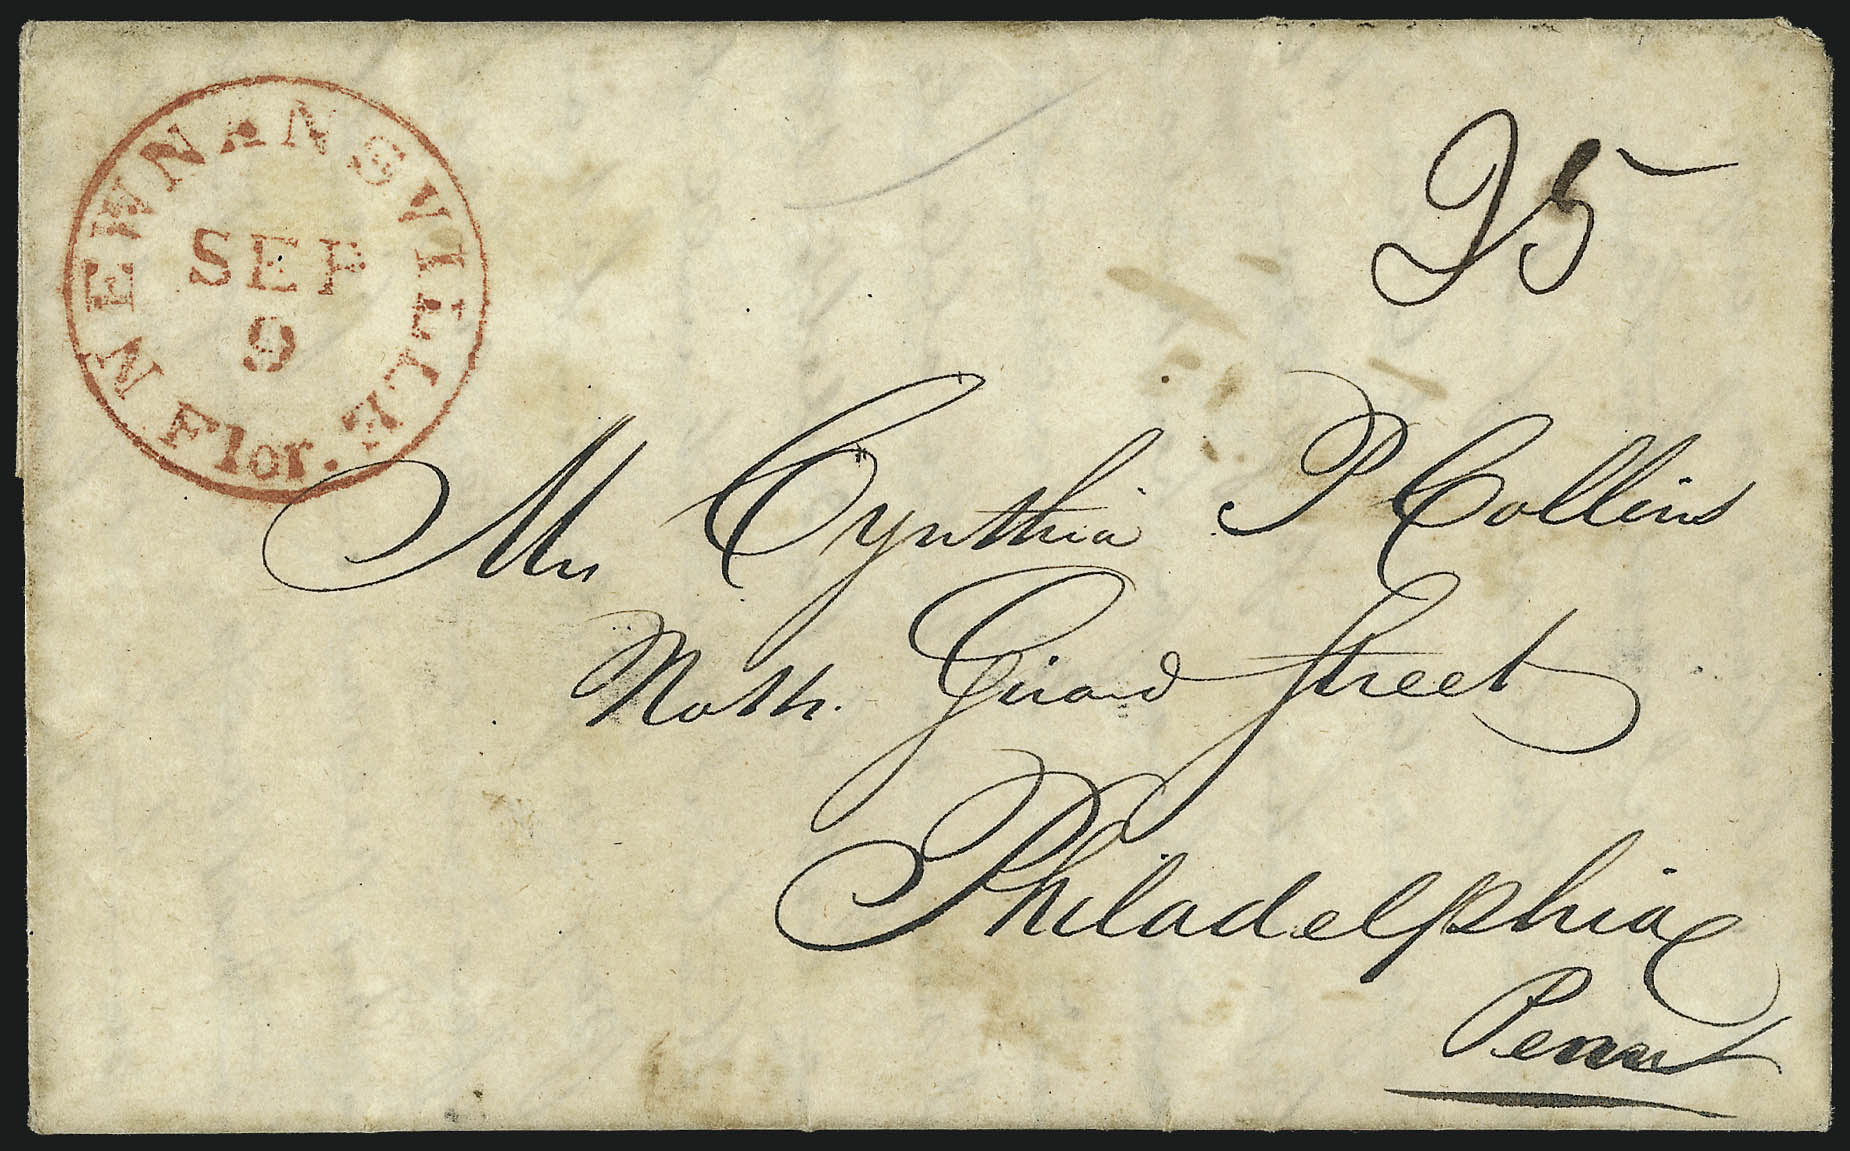 NEWNANSVILLE
Flor.
SEP
9
25
Mrs Cynthia P Collins
North Girard Street
Philadelphia
Penn